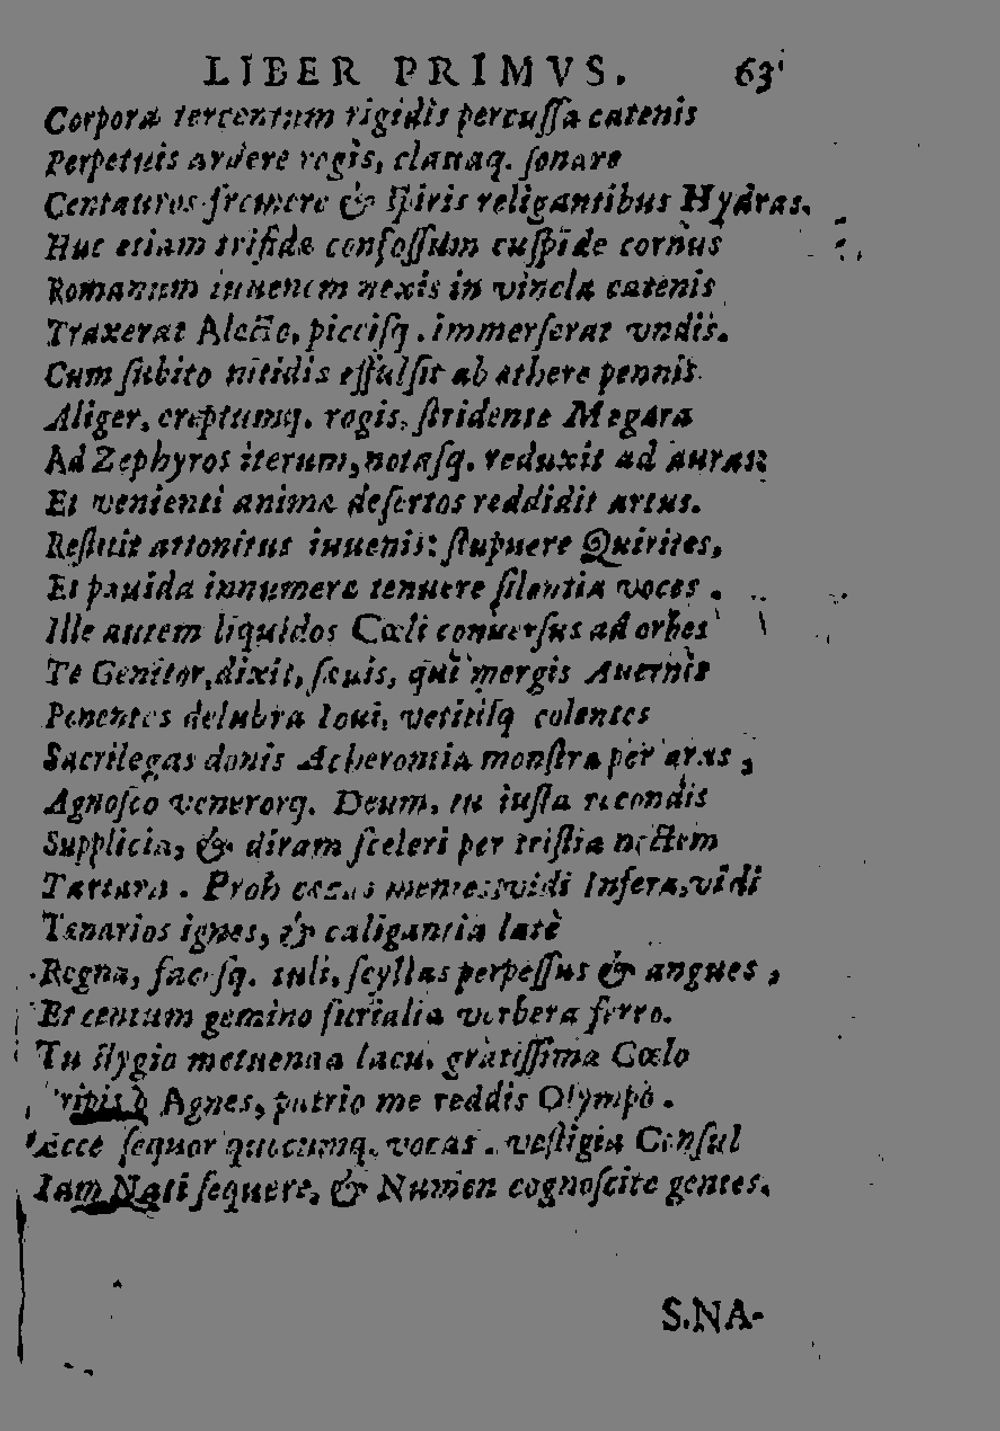 LIBER PRIMVS. 63
Corpora tercentum rigidis percuſſa catenis
Perpetuis ardere rogis, clauaq. ſonare
Centauros fremere & ſpiris religantibus Hydras.
Huc etiam trifidæ confoſſum cuſpide cornus
Romanum iuuenem nexis in vincla catenis
Traxerat Alecto, piceiſq. immerſerat vndis.
Cum ſubito nitidis effulſit ab æthere pennis
Aliger, ereptumq. rogis, ſtridente Megæra
Ad Zephyros iterum, notaſq. reduxit ad auras:
Et venienti animæ deſertos reddidit artus.
Reſtitit attonitus iuuenis: ſtupuere Quirites,
Et pauida innumeræ tenuere ſilentia voces.
Ille autem liquidos Cœli conuerſus ad orbes
Te Genitor, dixit, ſæuis, qui mergis Auernis
Ponentes delubra Ioui, vetitiſq colentes
Sacrilegas donis Acherontia monſtra per aras,
Agnoſco venerorq. Deum, tu iuſta recondis
Supplicia, & diram ſceleri per triſtia noctem
Tartara. Proh cæcas mentes: vidi Infera, vidi
Tænarios ignes, & caligantia latè
Regna, faceſq. tuli, ſcyllas perpeſſus & angues,
Et centum gemino furialia verbera ferro.
Tu ſtygio metuenda lacu, gratiſſima Cœlo
Agnes, patrio me reddis Olympo.
Ecce ſequor quocumq. vocas. veſtigia Conſul
Iam Nati ſequere, & Numen cognoſcite gentes.
S.NA-